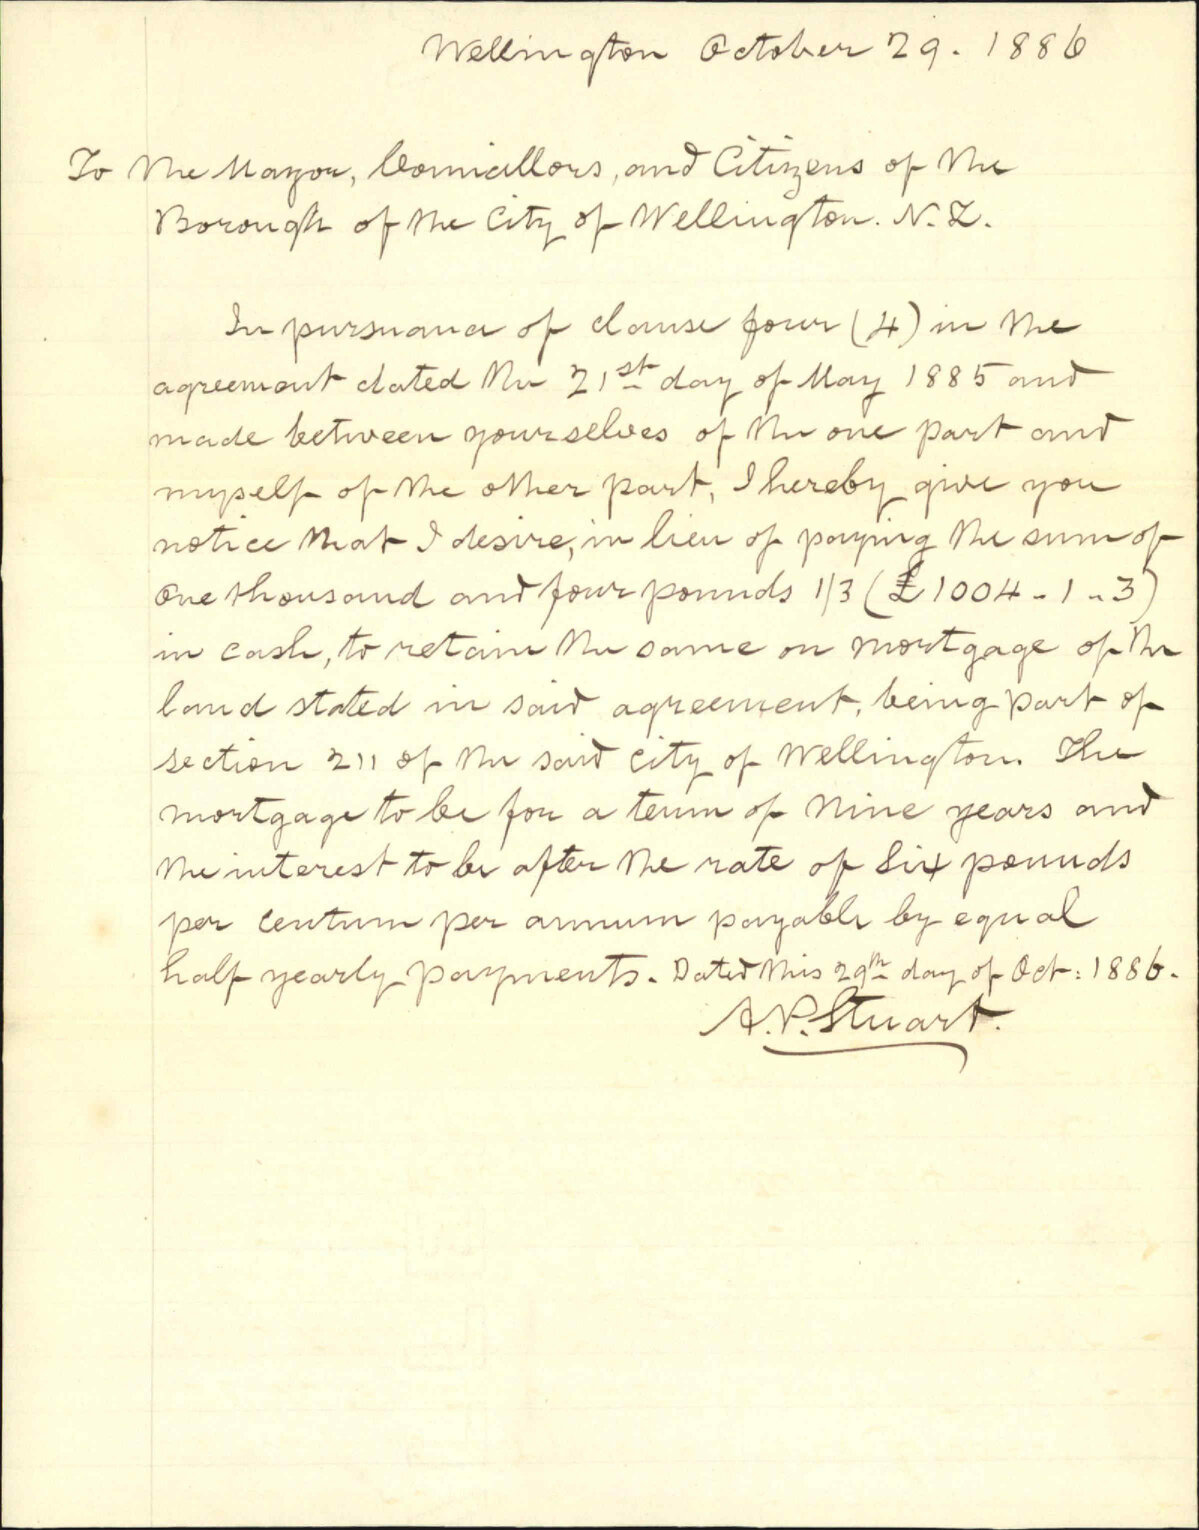 Wellington October 29. 1886
To the Mayor, Councillors, and Citizens of the
Borough of the City of Wellington. N.Z.
In pursuance of clause four (4) in the
agreement dated the 21st day of May 1885 and
made between yourselves of the one part and
myself of the other part, I hereby give you
notice that I desire, in lieu of paying the sum of
One thousand and four pounds 1/3 (£1004-1-3)
in cash, to retain the same on mortgage of the
land stated in said agreement, being part of
section 211 of the said city of Wellington. The
mortgage to be for a term of Nine years and
the interest to be after the rate of Six pounds
per centum per annum payable by equal
half yearly payments. Dated this 29th day of Oct: 1886.
A.P. Stuart.